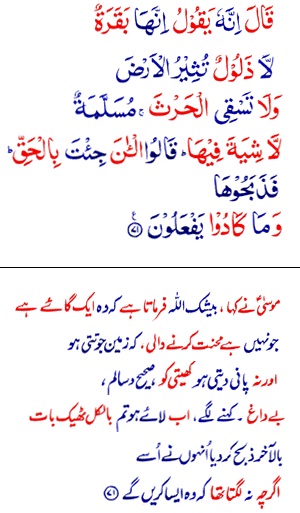 قَالَ اِنَّهٗ يَقُوْلُ اِنَّهَا بَقَرَةٌ
لَّا ذَلُوْلٌ تُثِيْرُ الْاَرْضَ
وَلَا تَسْقِى الْحَرْثَ ۚ مُسَلَّمَةٌ
لَّا شِيَةَ فِيْهَا ؕ قَالُوا الْـٰٔنَ جِئْتَ بِالْحَقِّ ؕ
فَذَبَحُوْهَا
وَمَا كَادُوْا يَفْعَلُوْنَ ﴿۷۱﴾ ع
موسیٰؑ نے کہا ، بیشک اللہ فرماتا ہے کہ وہ ایک گائے ہے
جو نہیں ہے محنت کرنے والی ۔ کہ زمین جوتتی ہو
اور نہ پانی دیتی ہو کھیتی کو ، صحیح و سالم ،
بے داغ ۔ کہنے لگے ، اب لائے ہو تم بالکل ٹھیک بات
بالآخر ذبح کر دیا اُنہوں نے اُسے
اگرچہ نہ لگتا تھا کہ وہ ایسا کریں گے ﴿۷۱﴾